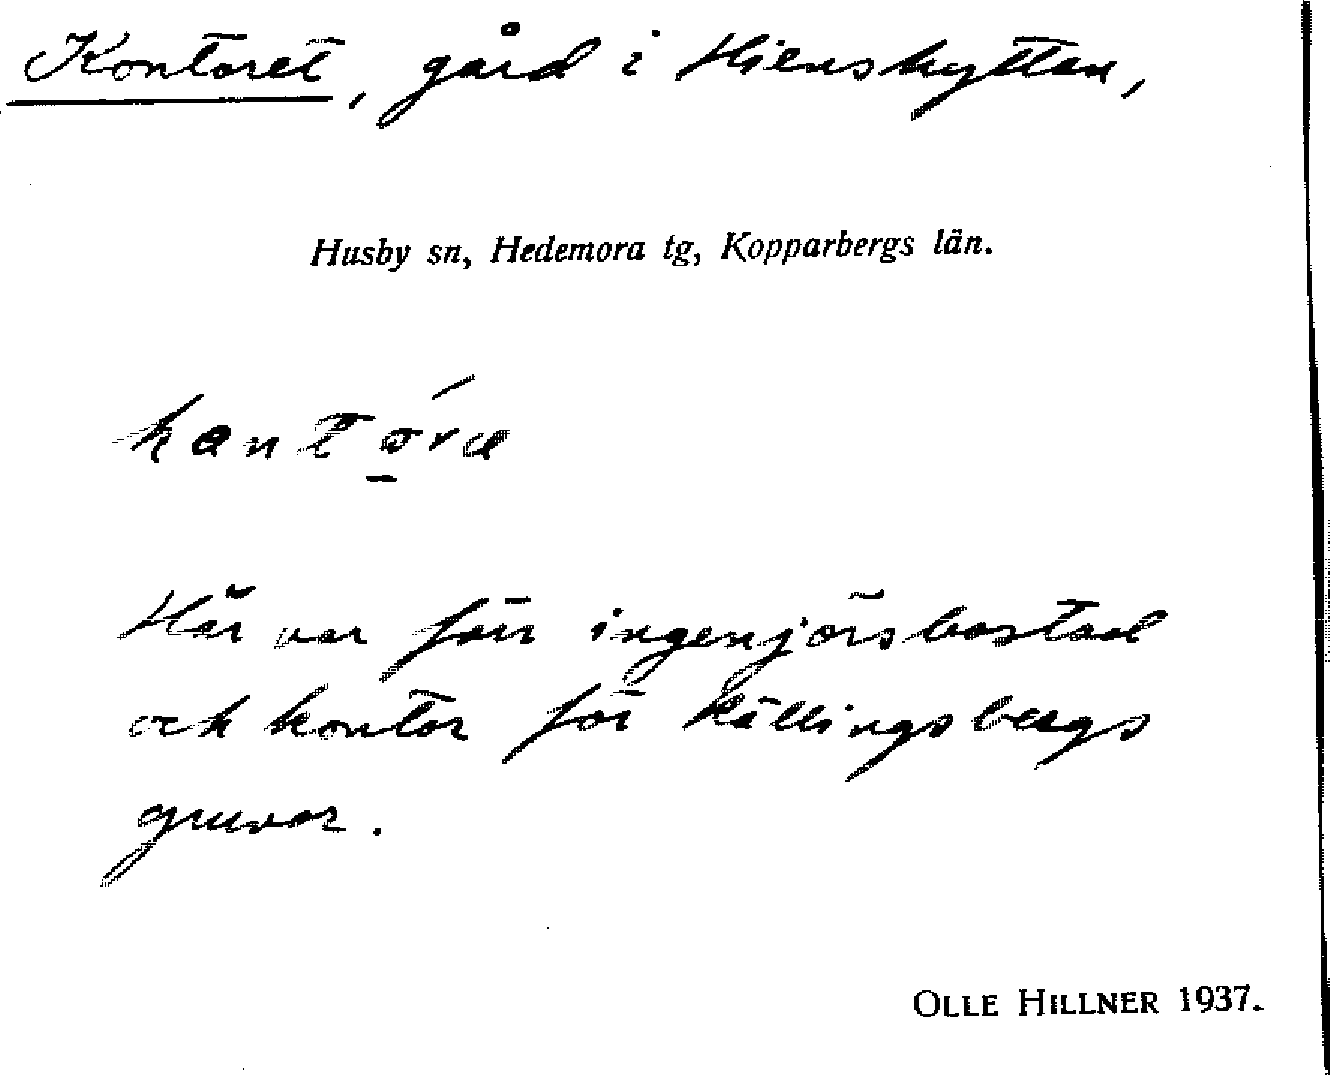 Kontoret, gård i Hienshyttan,
Husby sn, Hedemora tg, Kopparbergs län.
Här var förr ingenjörsbostad
och kontor för Källingsbergs
gruvor.
OLLE HILLNER 1937.